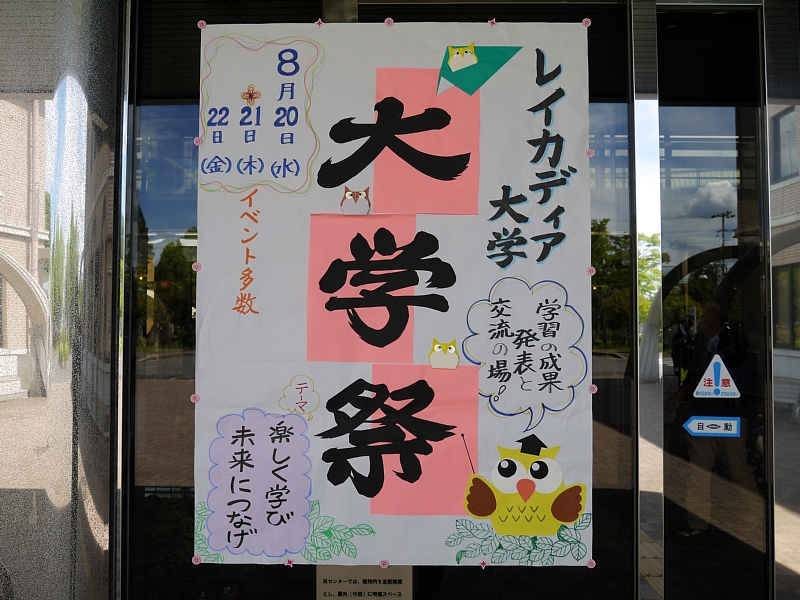 レイカディア
大学
大学祭
8月
20日
(水)
21日
(木)
22日
(金)
イベント多数
学習の成果
発表と
交流の場!
テーマ
楽しく学び
未来につなげ
注意
自動